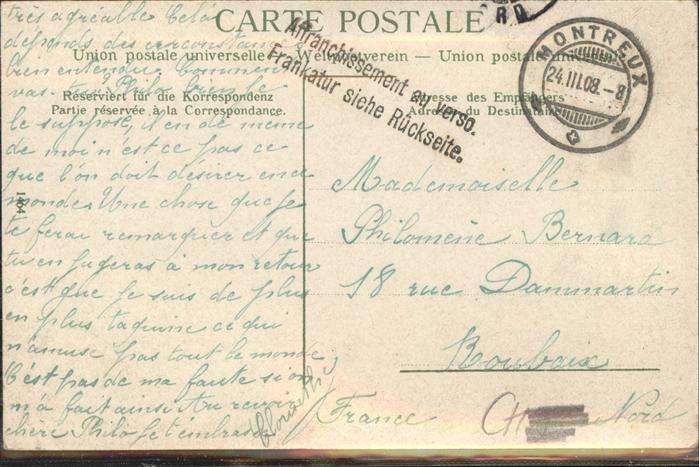 CARTE POSTALE
Union postale universelle — Weltpostverein — Union postale universelle
Reserviert für die Korrespondenz
Partie réservée à la Correspondance.
Adresse des Empfängers
Adresse du Destinataire
Affranchissement au verso.
Frankatur siehe Rückseite.
MONTREUX
24.III.08.-8
1464
très agréable Cela
dépends des circonstances
bien entendu. Comment
vas
le suppose, il en de même
de moi n'est ce pas ce
que l'on doit désirer en ce
monde. Une chose que je
te ferai remarquer et que
tu en jugeras à mon retour
c'est que je suis de plus
en plus taquine ce qui
n'amuse pas tout le monde,
C'est pas de ma faute si on
m'a fait ainsi Au revoir
chère Philo je t'embrasse
Mademoiselle
Philomène Bernard
18 rue Dammartin
Roubaix
France
Nord